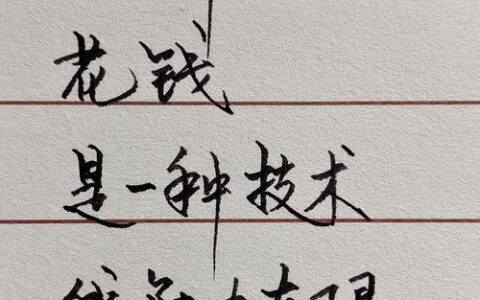 花钱
是一种技术